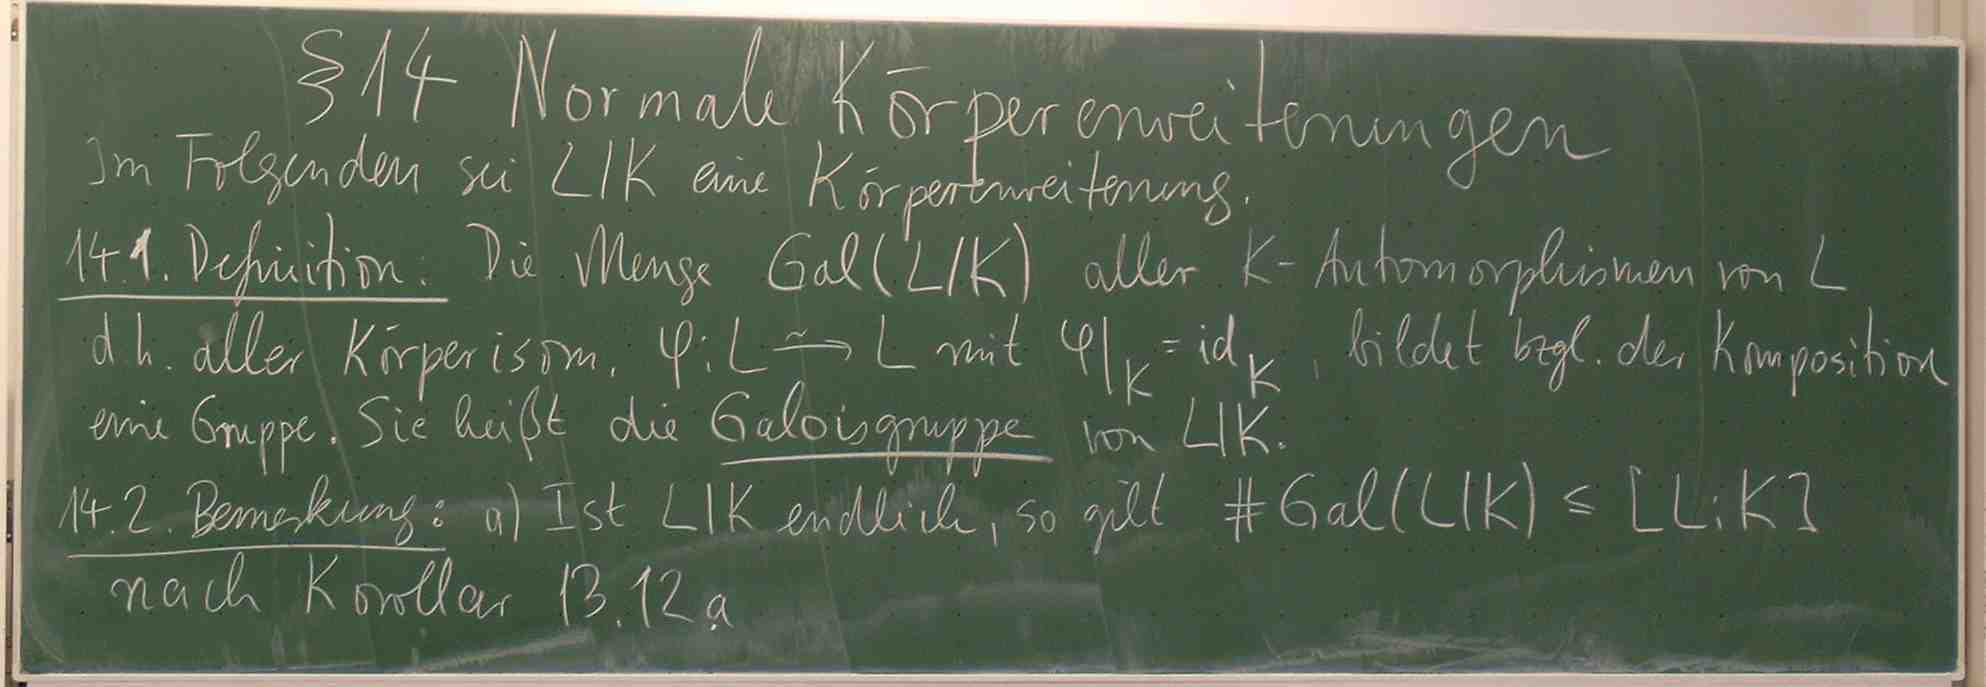 §14 Normale Körpererweiterungen
Im Folgenden sei L|K eine Körpererweiterung.
14.1. Definition: Die Menge Gal(L|K) aller K-Automorphismen von L
d.h. aller Körperisom. φ: L ⥲ L mit φ|_K = id_K, bildet bzgl. der Komposition
eine Gruppe. Sie heißt die Galoisgruppe von L|K.
14.2. Bemerkung: a) Ist L|K endlich, so gilt #Gal(L|K) ≤ [L:K]
nach Korollar 13.12a